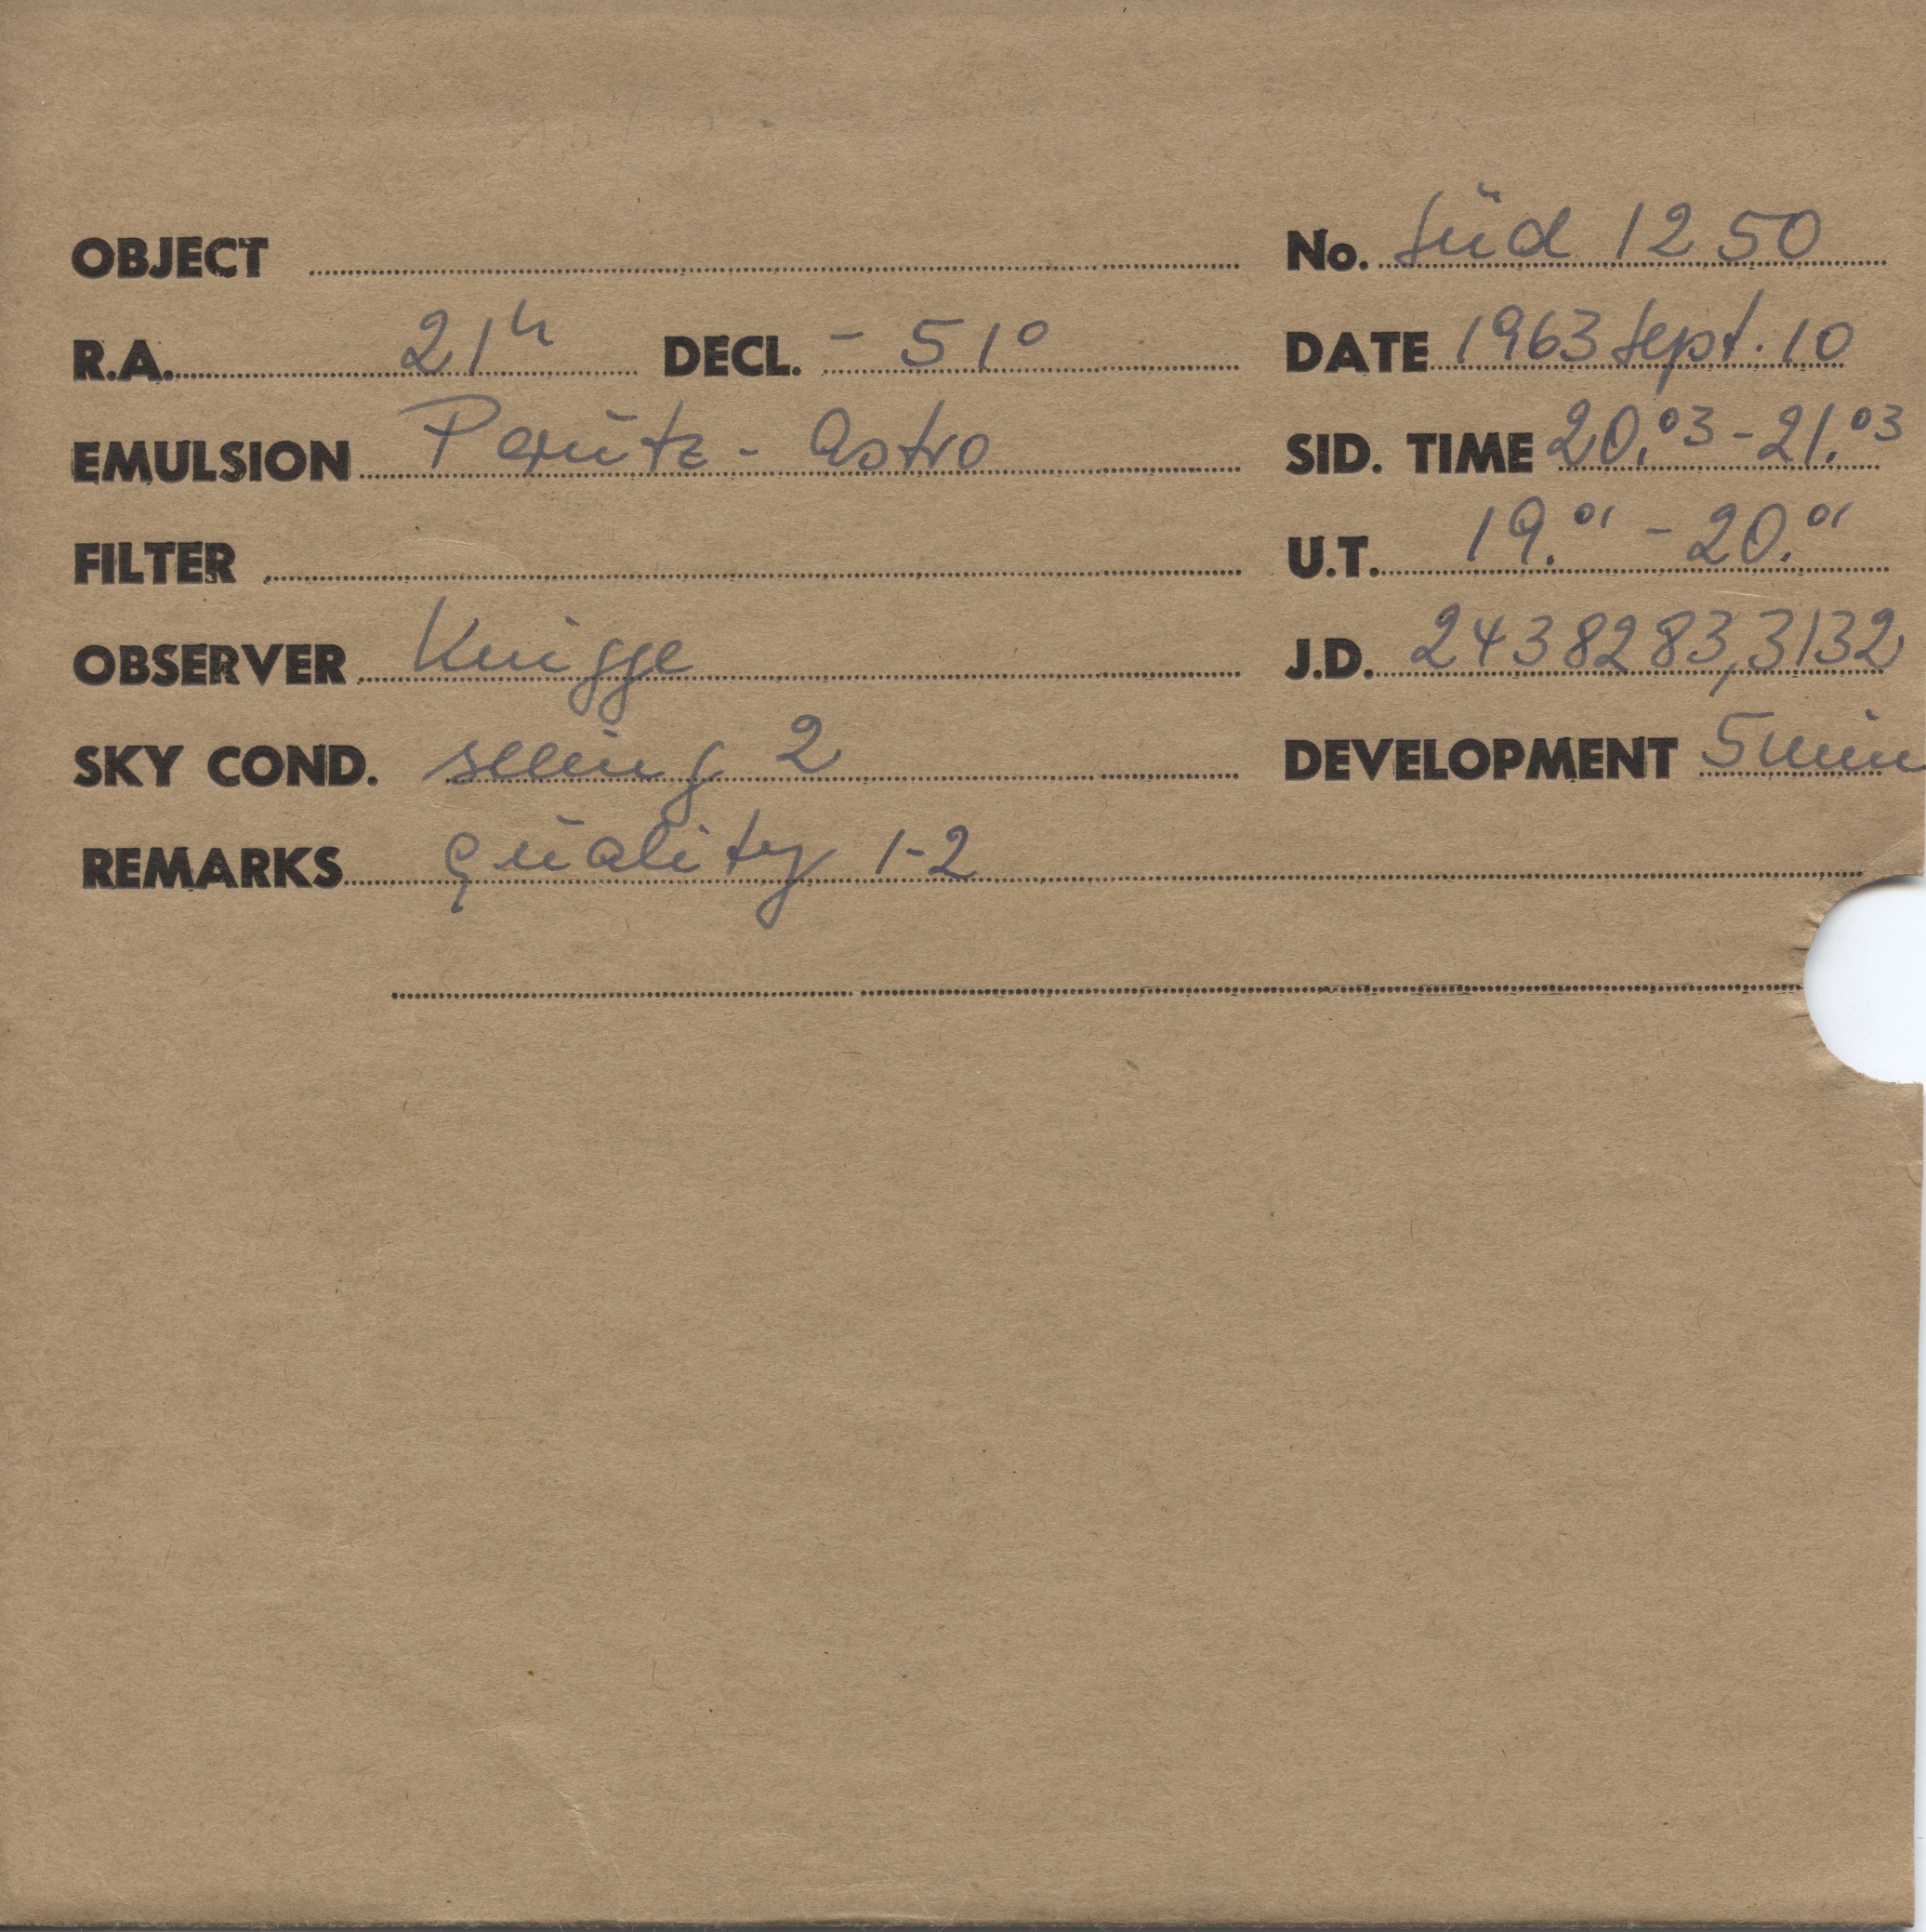 OBJECT No. Süd 1250
R.A. 21h DECL. - 51°
DATE 1963 Sept. 10
EMULSION Perutz - Astro
SID. TIME 20.03 - 21.03
FILTER U.T. 19.01 - 20.01
OBSERVER Knigge
J.D. 2438283,3132
SKY COND. seeing 2
DEVELOPMENT 5 min
REMARKS quality 1-2